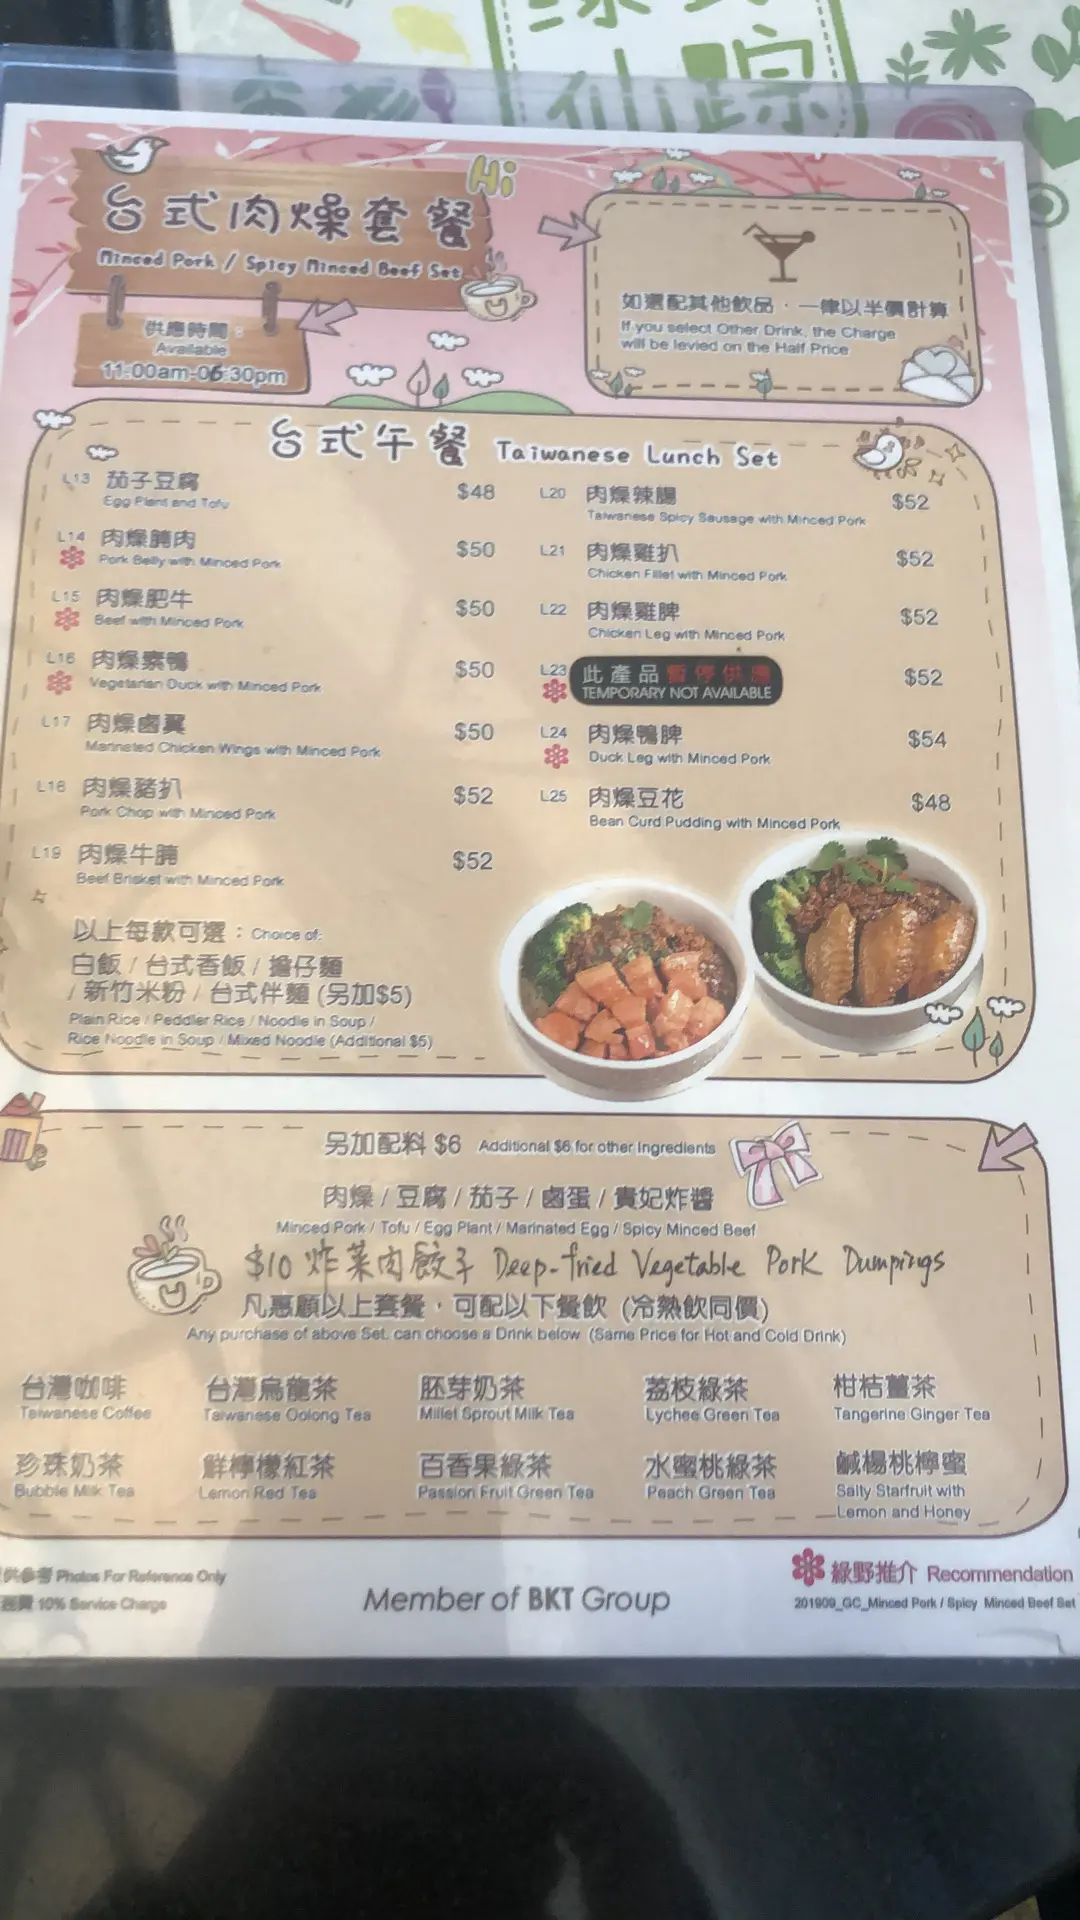 仙踪
Hi
台式肉燥套餐
Minced Pork / Spicy Minced Beef Set
供應時間：
Available
11:00am-06:30pm
如選配其他飲品，一律以半價計算
If you select Other Drink, the Charge
will be levied on the Half Price
台式午餐 Taiwanese Lunch Set
L13 茄子豆腐 $48
Egg Plant and Tofu
L14 肉燥腩肉 $50
Pork Belly with Minced Pork
L15 肉燥肥牛 $50
Beef with Minced Pork
L16 肉燥素鴨 $50
Vegetarian Duck with Minced Pork
L17 肉燥鹵翼 $50
Marinated Chicken Wings with Minced Pork
L18 肉燥豬扒 $52
Pork Chop with Minced Pork
L19 肉燥牛腩 $52
Beef Brisket with Minced Pork
L20 肉燥辣腸 $52
Taiwanese Spicy Sausage with Minced Pork
L21 肉燥雞扒 $52
Chicken Fillet with Minced Pork
L22 肉燥雞脾 $52
Chicken Leg with Minced Pork
L23 此產品暫停供應 $52
TEMPORARY NOT AVAILABLE
L24 肉燥鴨脾 $54
Duck Leg with Minced Pork
L25 肉燥豆花 $48
Bean Curd Pudding with Minced Pork
以上每款可選：Choice of:
白飯 / 台式香飯 / 擔仔麵
/ 新竹米粉 / 台式伴麵 (另加$5)
Plain Rice / Peddler Rice / Noodle in Soup /
Rice Noodle in Soup / Mixed Noodle (Additional $5)
另加配料 $6 Additional $6 for other Ingredients
肉燥 / 豆腐 / 茄子 / 鹵蛋 / 貴妃炸醬
Minced Pork / Tofu / Egg Plant / Marinated Egg / Spicy Minced Beef
$10 炸菜肉餃子 Deep-fried Vegetable Pork Dumpings
凡惠顧以上套餐，可配以下餐飲 (冷熱飲同價)
Any purchase of above Set, can choose a Drink below (Same Price for Hot and Cold Drink)
台灣咖啡 台灣烏龍茶 胚芽奶茶 荔枝綠茶 柑桔薑茶
Taiwanese Coffee Taiwanese Oolong Tea Millet Sprout Milk Tea Lychee Green Tea Tangerine Ginger Tea
珍珠奶茶 鮮檸檬紅茶 百香果綠茶 水蜜桃綠茶 鹹楊桃檸蜜
Bubble Milk Tea Lemon Red Tea Passion Fruit Green Tea Peach Green Tea Salty Starfruit with
Lemon and Honey
供參考 Photos For Reference Only
10% Service Charge
Member of BKT Group
綠野推介 Recommendation
201909_GC_Minced Pork / Spicy Minced Beef Set